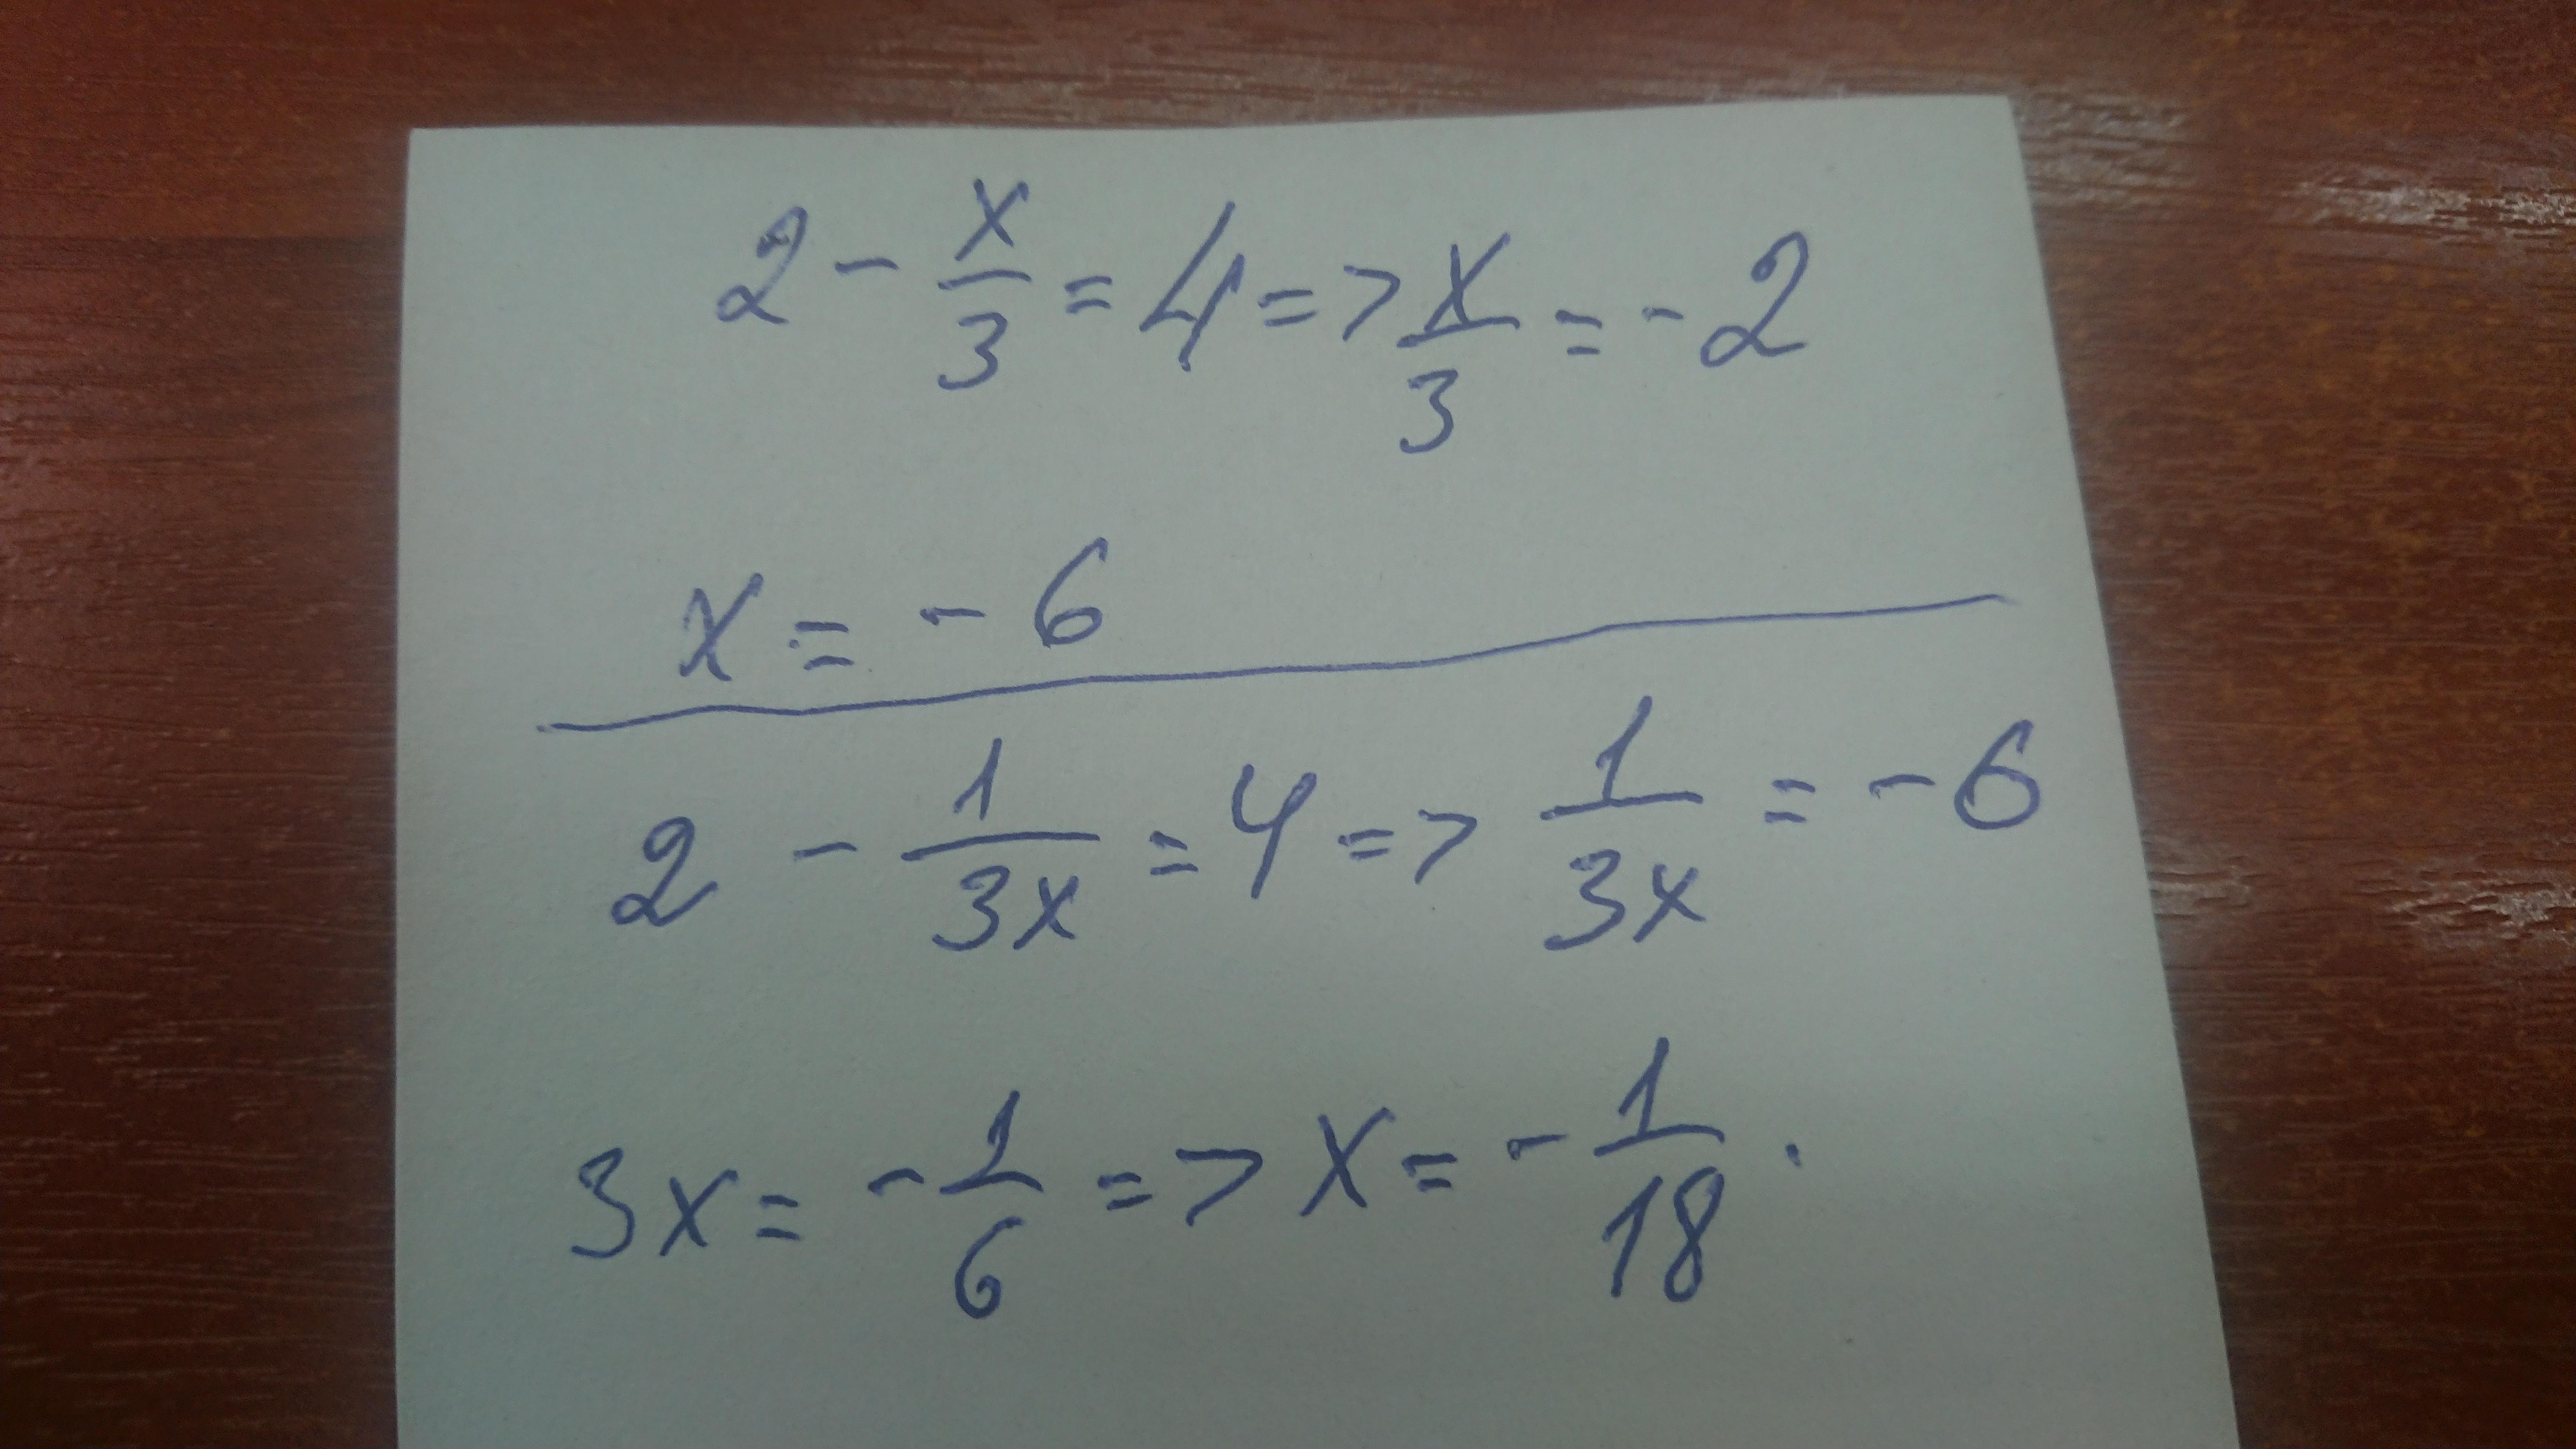 2 - x/3 = 4 => x/3 = -2
x = -6
2 - 1/3x = 4 => 1/3x = -6
3x = -1/6 => x = -1/18.